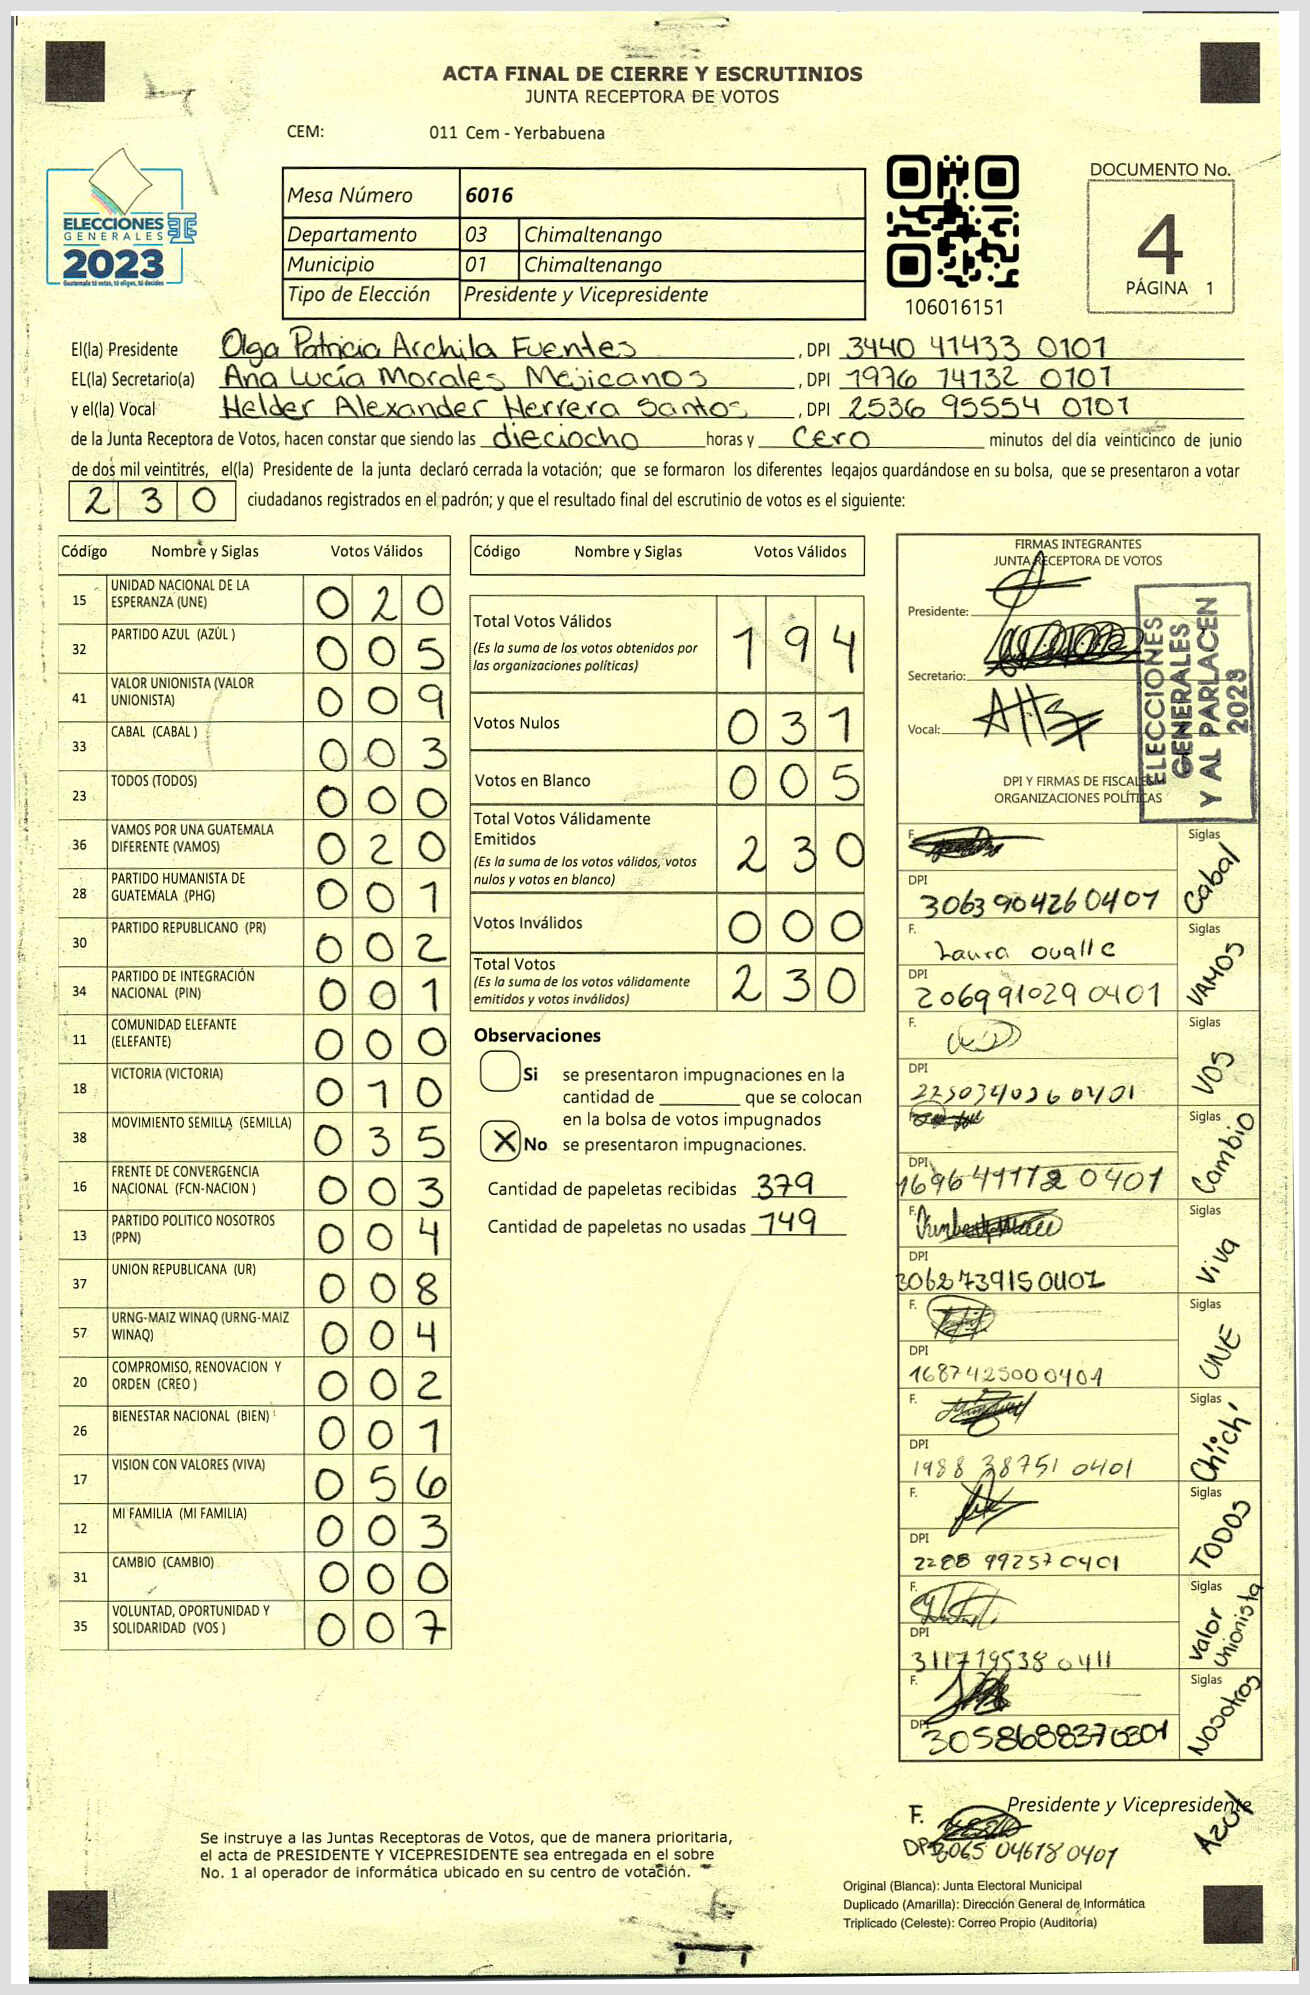 ACTA FINAL DE CIERRE Y ESCRUTINIOS
JUNTA RECEPTORA DE VOTOS
CEM: 011 Cem - Yerbabuena
ELECCIONES
GENERALES
2023
Guatemala tú votas, tú eliges, tú decides
Mesa Número 6016
Departamento 03 Chimaltenango
Municipio 01 Chimaltenango
Tipo de Elección Presidente y Vicepresidente
106016151
DOCUMENTO No.
4
PÁGINA 1
El(la) Presidente Olga Patricia Archila Fuentes, DPI 3440 41433 0101
EL(la) Secretario(a) Ana Lucía Morales Mejicanos, DPI 1976 14132 0101
y el(la) Vocal Helder Alexander Herrera Santos, DPI 2536 95554 0101
de la Junta Receptora de Votos, hacen constar que siendo las dieciocho horas y cero minutos del día veinticinco de junio
de dos mil veintitrés, el(la) Presidente de la junta declaró cerrada la votación; que se formaron los diferentes legajos guardándose en su bolsa, que se presentaron a votar
230 ciudadanos registrados en el padrón; y que el resultado final del escrutinio de votos es el siguiente:
Código Nombre y Siglas Votos Válidos
15 UNIDAD NACIONAL DE LA ESPERANZA (UNE) 020
32 PARTIDO AZUL (AZÚL ) 005
41 VALOR UNIONISTA (VALOR UNIONISTA) 009
33 CABAL (CABAL ) 003
23 TODOS (TODOS) 000
36 VAMOS POR UNA GUATEMALA DIFERENTE (VAMOS) 020
28 PARTIDO HUMANISTA DE GUATEMALA (PHG) 001
30 PARTIDO REPUBLICANO (PR) 002
34 PARTIDO DE INTEGRACIÓN NACIONAL (PIN) 001
11 COMUNIDAD ELEFANTE (ELEFANTE) 000
18 VICTORIA (VICTORIA) 010
38 MOVIMIENTO SEMILLA (SEMILLA) 035
16 FRENTE DE CONVERGENCIA NACIONAL (FCN-NACION ) 003
13 PARTIDO POLITICO NOSOTROS (PPN) 004
37 UNION REPUBLICANA (UR) 008
57 URNG-MAIZ WINAQ (URNG-MAIZ WINAQ) 004
20 COMPROMISO, RENOVACION Y ORDEN (CREO ) 002
26 BIENESTAR NACIONAL (BIEN) 001
17 VISION CON VALORES (VIVA) 056
12 MI FAMILIA (MI FAMILIA) 003
31 CAMBIO (CAMBIO) 000
35 VOLUNTAD, OPORTUNIDAD Y SOLIDARIDAD (VOS ) 007
Código Nombre y Siglas Votos Válidos
Total Votos Válidos 194
(Es la suma de los votos obtenidos por
las organizaciones políticas)
Votos Nulos 031
Votos en Blanco 005
Total Votos Válidamente
Emitidos 230
(Es la suma de los votos válidos, votos
nulos y votos en blanco)
Votos Inválidos 000
Total Votos 230
(Es la suma de los votos válidamente
emitidos y votos inválidos)
Observaciones
Si se presentaron impugnaciones en la
cantidad de ________ que se colocan
en la bolsa de votos impugnados
X No se presentaron impugnaciones.
Cantidad de papeletas recibidas 379
Cantidad de papeletas no usadas 149
FIRMAS INTEGRANTES
JUNTA RECEPTORA DE VOTOS
Presidente:
Secretario:
Vocal:
ELECCIONES
GENERALES
Y AL PARLACEN
2023
DPI Y FIRMAS DE FISCALES
ORGANIZACIONES POLÍTICAS
F. Siglas Cabal
DPI 3063904260401
F. Laura Ovalle Siglas VAMOS
DPI 2069910290401
F. Siglas VOS
DPI 2250340260401
F. Siglas Cambio
DPI
F. Siglas Viva
DPI 3062739150401
F. Siglas UNE
DPI 1687425000401
F. Siglas Chichi
DPI 1988 38751 0401
F. Siglas TODOS
DPI 2288 99257 0401
F. Siglas Valor Unionista
DPI 3117195380411
F. Siglas Nosotros
DPI 3058688370301
Presidente y Vicepresidente
F. Azul
DPI 3065 04618 0401
Se instruye a las Juntas Receptoras de Votos, que de manera prioritaria,
el acta de PRESIDENTE Y VICEPRESIDENTE sea entregada en el sobre
No. 1 al operador de informática ubicado en su centro de votación.
Original (Blanca): Junta Electoral Municipal
Duplicado (Amarilla): Dirección General de Informática
Triplicado (Celeste): Correo Propio (Auditoría)